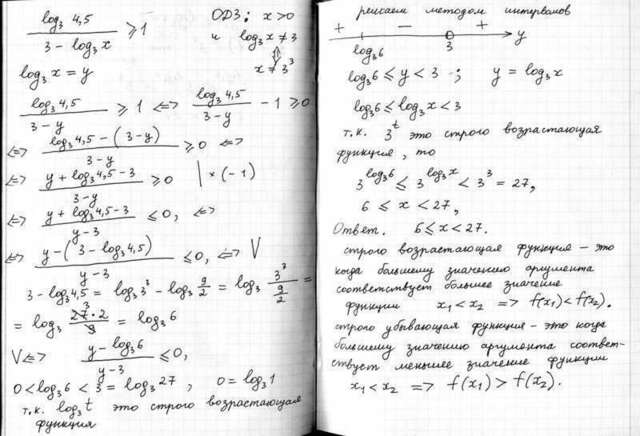 log₃ 4,5 / (3 - log₃x) ⩾ 1
ОДЗ: x > 0
и log₃x ≠ 3
⇕
x ≠ 3³
log₃x = y
log₃ 4,5 / (3 - y) ⩾ 1 <=> log₃ 4,5 / (3 - y) - 1 ⩾ 0
<=> (log₃ 4,5 - (3 - y)) / (3 - y) ⩾ 0 <=>
<=> (y + log₃ 4,5 - 3) / (3 - y) ⩾ 0 | × (-1)
<=> (y + log₃ 4,5 - 3) / (y - 3) ⩽ 0, <=>
<=> (y - (3 - log₃ 4,5)) / (y - 3) ⩽ 0, <=> V
3 - log₃ 4,5 = log₃ 3³ - log₃ 9/2 = log₃ 3³ / (9/2) =
= log₃ 27·2 / 9 = log₃ 6
V <=> (y - log₃ 6) / (y - 3) ⩽ 0,
0 < log₃ 6 < 3 = log₃ 27, 0 = log₃ 1
т.к. log₃ t это строго возрастающая
функция
решаем методом интервалов
+ - +
log₃ 6 3 y
log₃ 6 ⩽ y < 3 ; y = log₃ x
log₃ 6 ⩽ log₃ x < 3
т.к. 3ᵗ это строго возрастающая
функция, то
3^(log₃ 6) ⩽ 3^(log₃ x) < 3³ = 27,
6 ⩽ x < 27,
Ответ. 6 ⩽ x < 27.
строго возрастающая функция - это
когда большему значению аргумента
соответствует большее значение
функции x₁ < x₂ => f(x₁) < f(x₂).
строго убывающая функция - это когда
большему значению аргумента соответ-
ствует меньшее значение функции
x₁ < x₂ => f(x₁) > f(x₂).